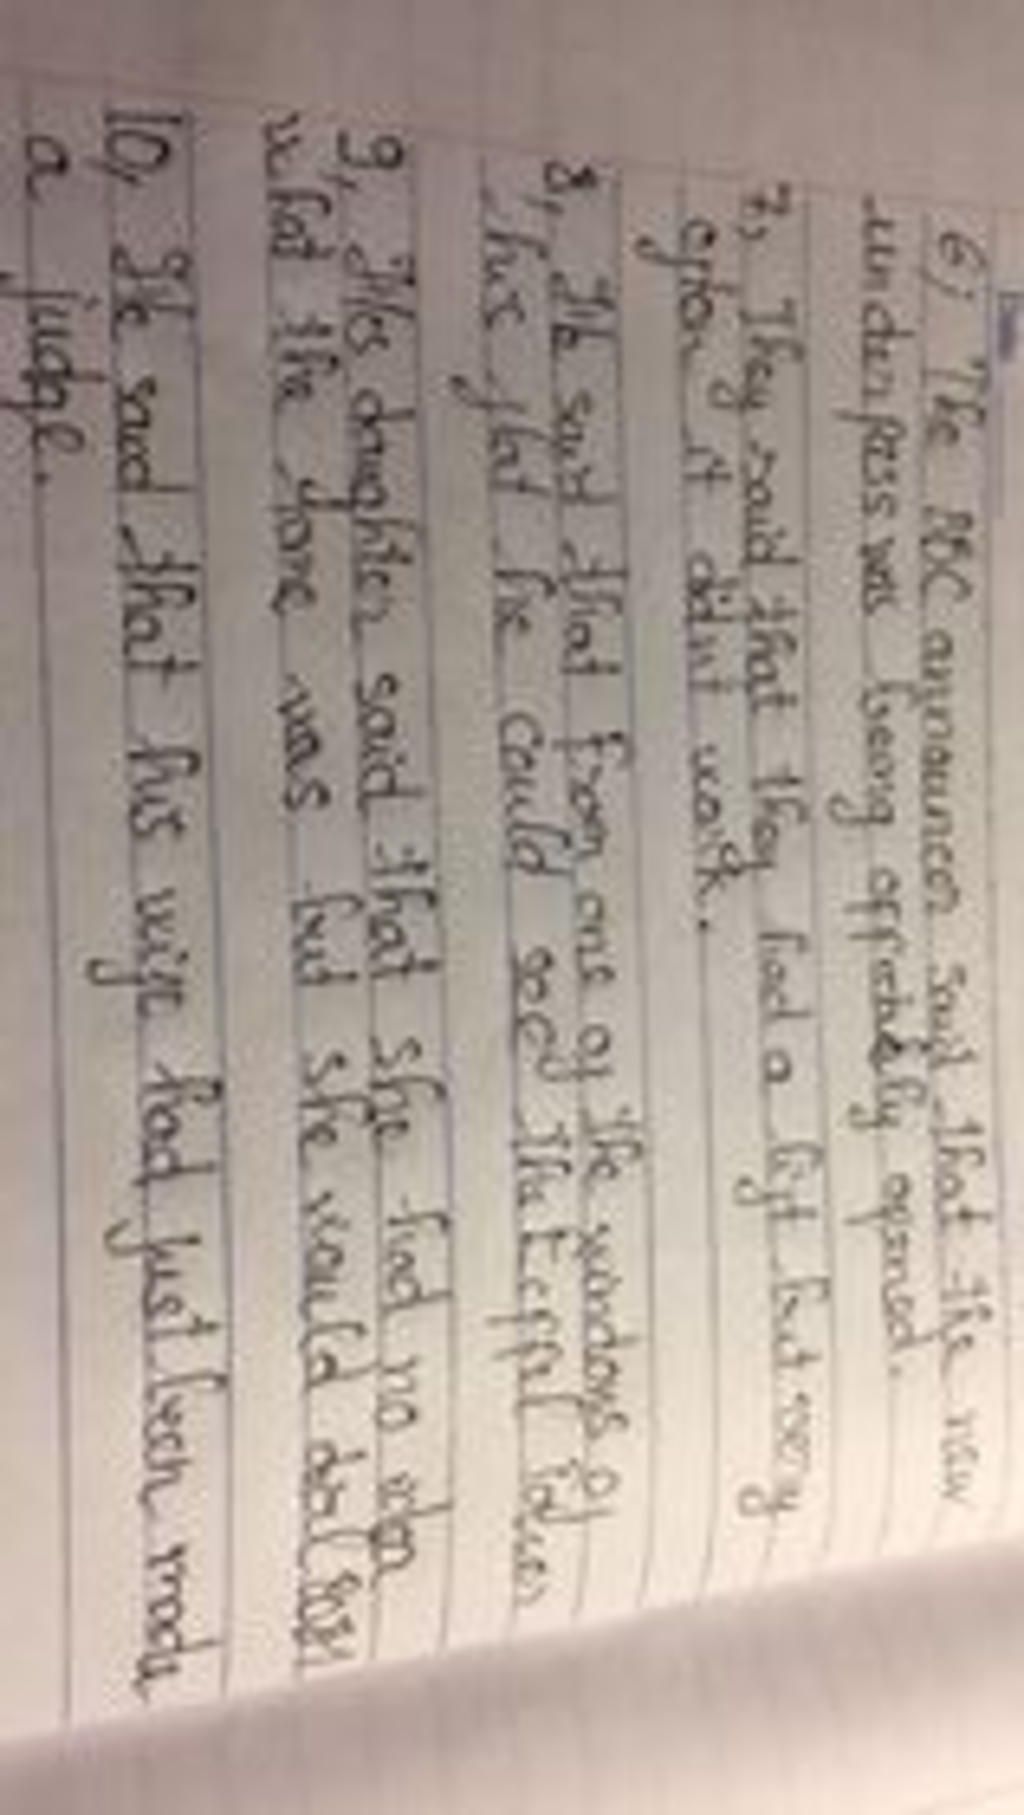 6, The BBC announcer said that the new
underpass was being officially opened.
7, They said that they had a lift but very
often it didn't work.
8, He said that from one of the windows of
his flat he could see the Eiffel Tower
9, His daughter said that she had no idea
what the time was but she would dial
10, He said that his wife had just been made
a judge.